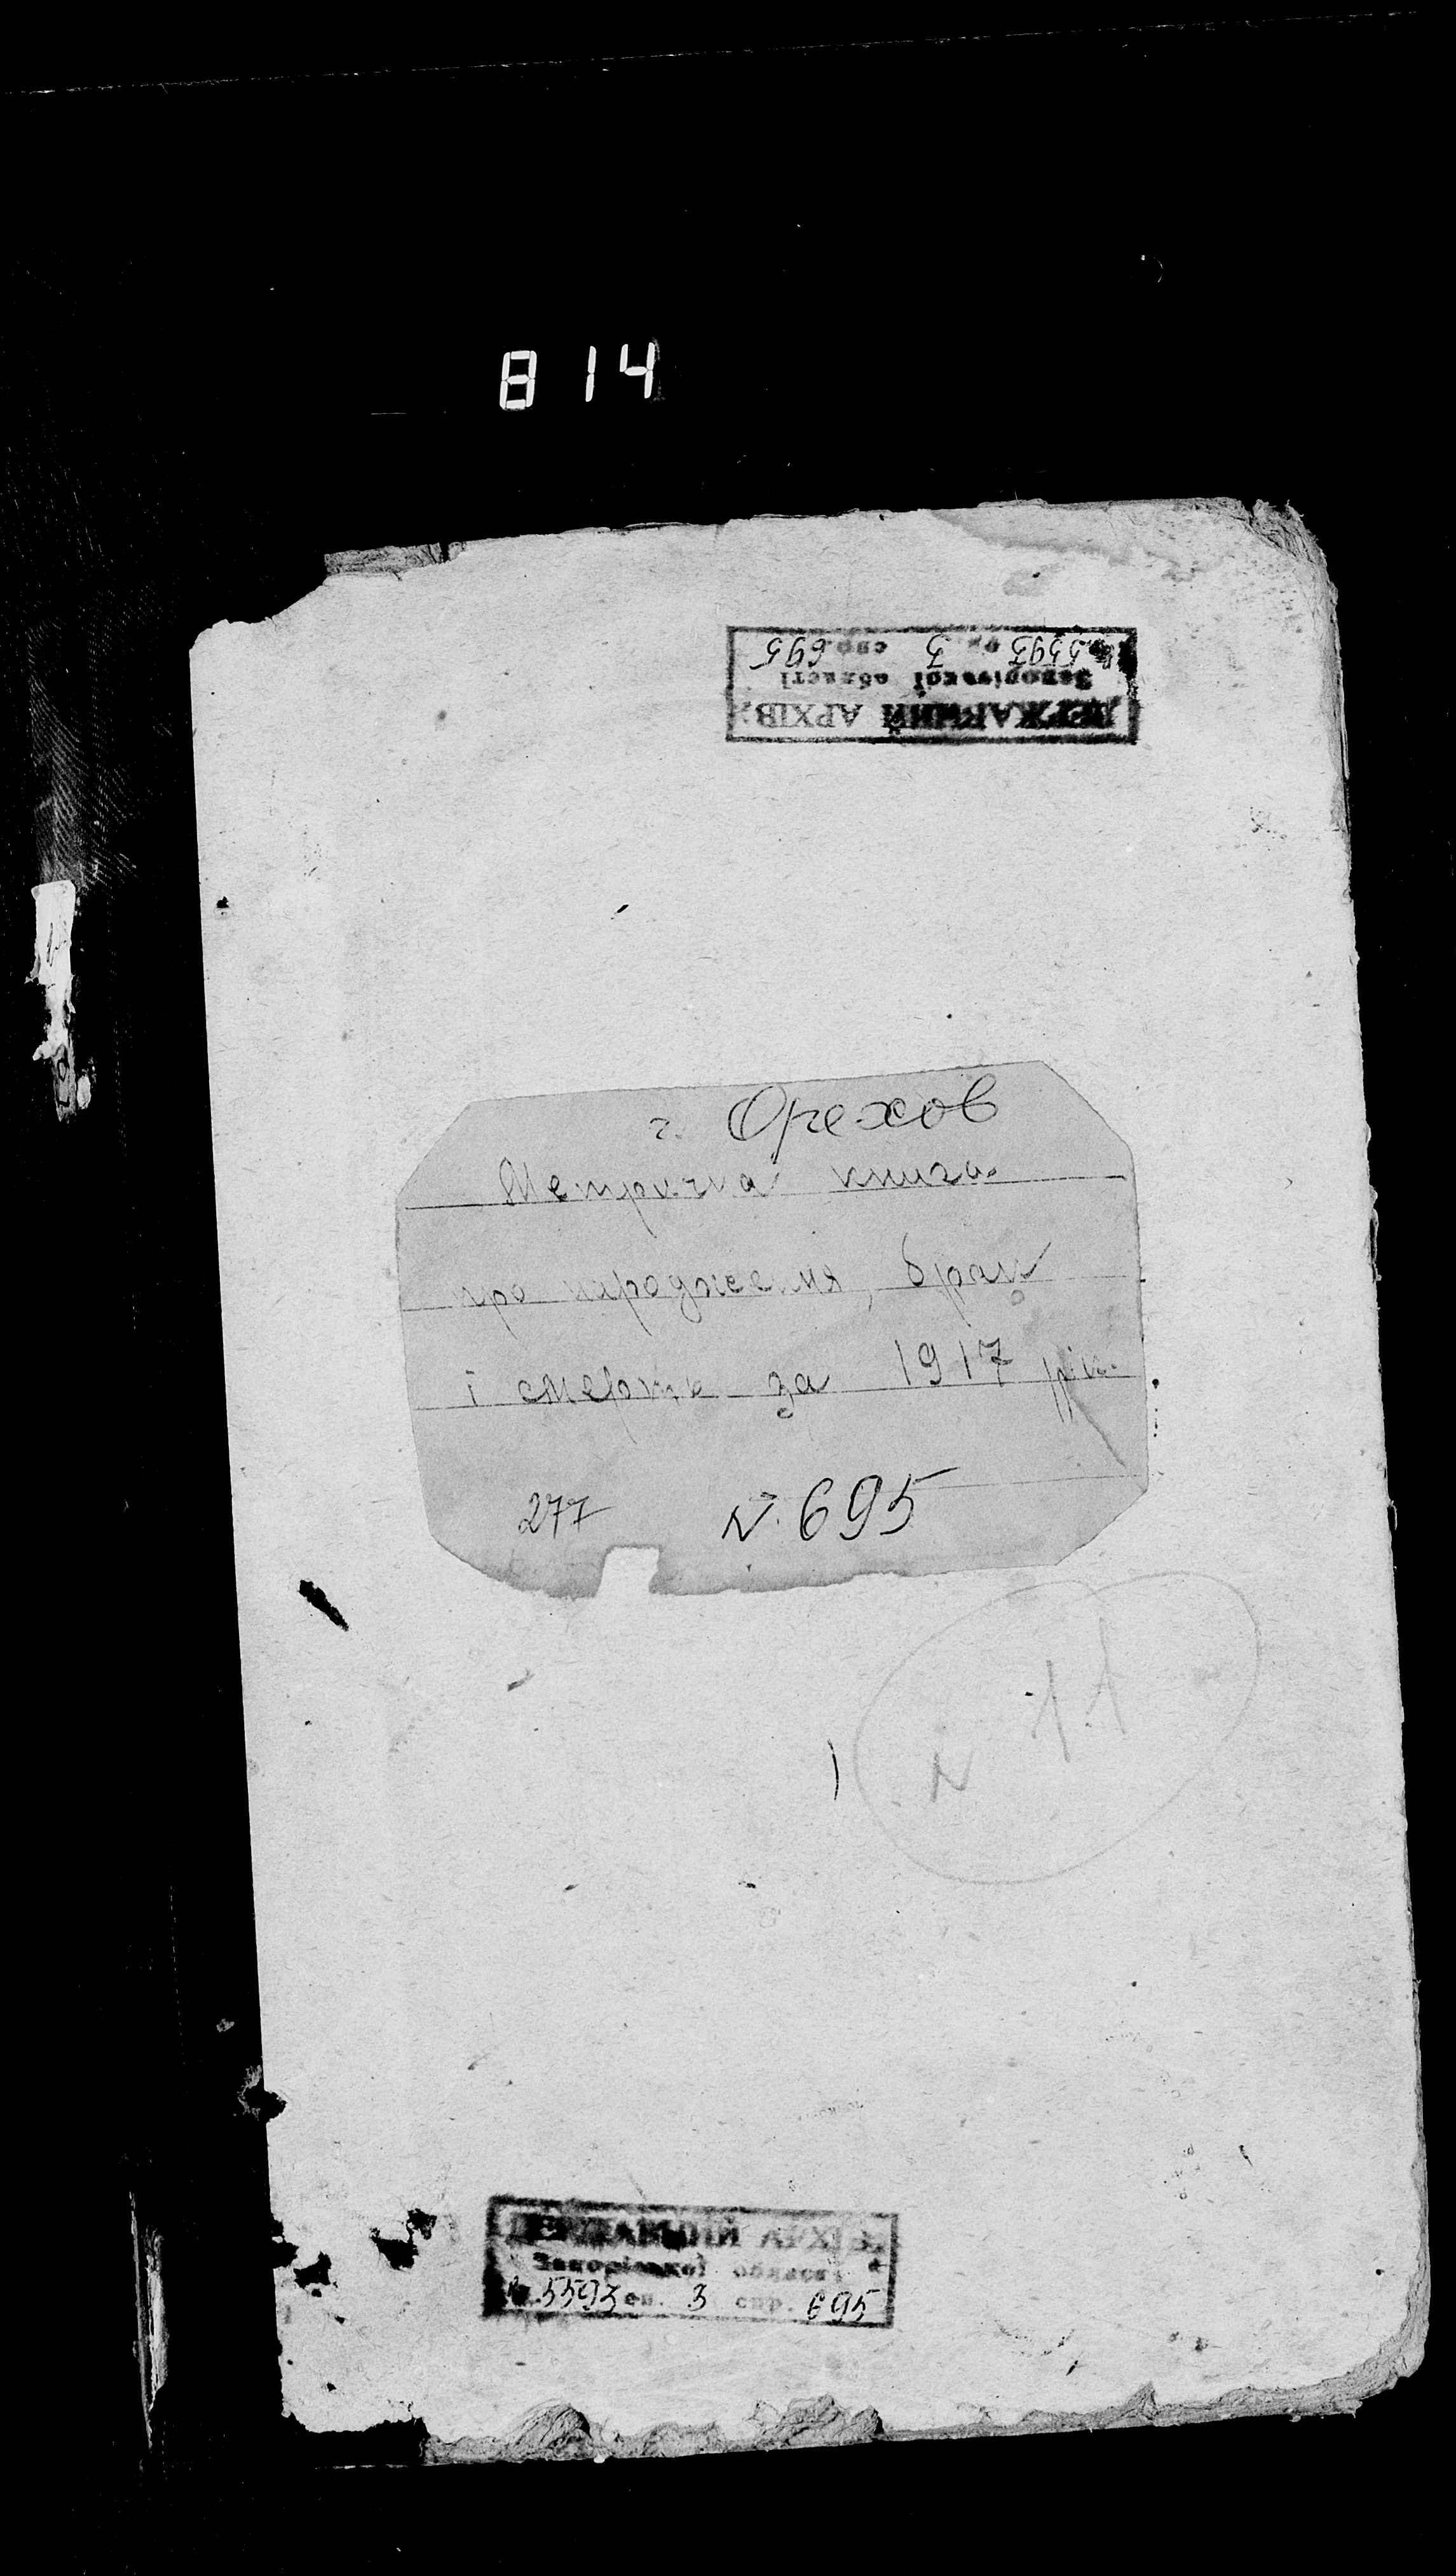 814
ДЕРЖАВНИЙ АРХІВ
Запорізької області
Ф. 5593 оп. 3 спр. 695
г. Орехов
Метрична книга
про народження, брак
і смерть за 1917 рік.
277 N. 695
N 11
ДЕРЖАВНИЙ АРХІВ
Запорізької області
Ф. 5593 оп. 3 спр. 695